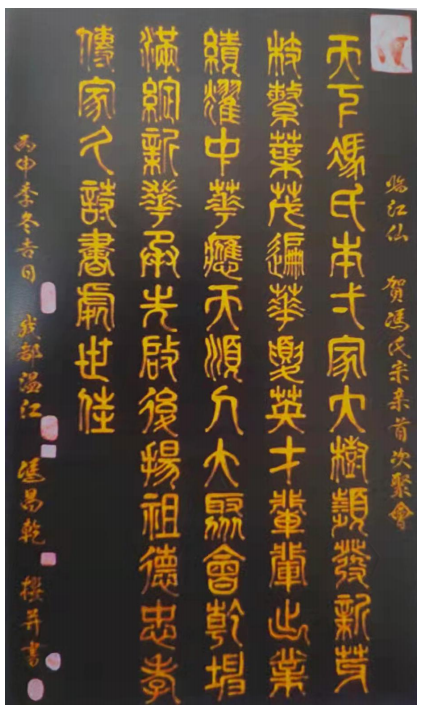 臨江仙 贺馮氏宗亲首次聚會
天下馮氏本弌家大樹頻發新芽
枝繁葉茂遍華夏英才輩輩出業
績耀中華應天順人大聚會乾坤
滿新華承先啟後揚祖德忠孝
傳家久詩書處世佳
丙申季冬吉日 成都温江 馮昌乾 撰并書